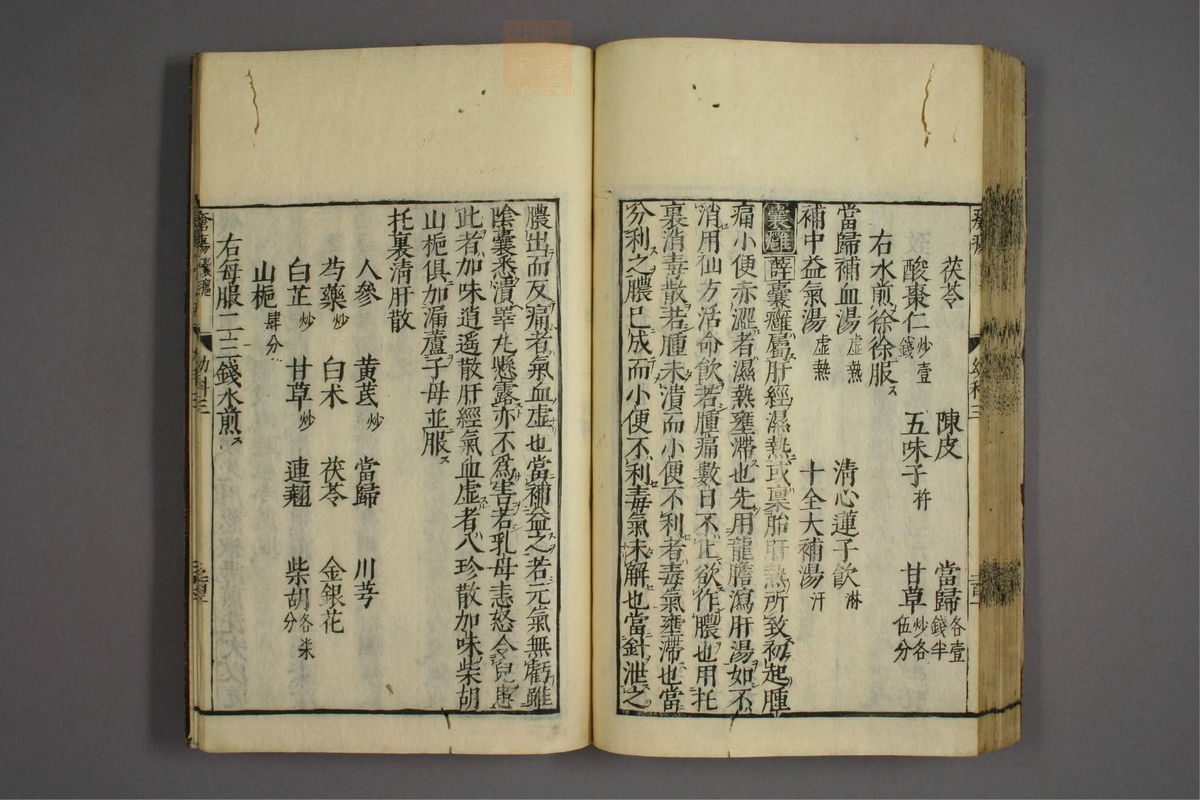 茯苓 陳皮 當歸各壹錢半
酸棗仁炒壹錢 五味子杵 甘草炒各伍分
右水煎徐徐服
當歸補血湯虛熱 清心蓮子飲淋
補中益氣湯虛熱 十全大補湯汗
囊癰薛囊癰屬肝經濕熱或稟胎肝熱所致初起腫
痛小便赤澀者濕熱壅滯也先用龍膽瀉肝湯如不
消用仙方活命飲若腫痛數日不止欲作膿也用托
裏消毒散若腫未潰而小便不利者毒氣壅滯也當
分利之膿已成而小便不利毒氣未解也當針泄之
膿出而反痛者氣血虛也當補益之若元氣無虧雖
陰囊悉潰睪丸懸露亦不為害若乳母恚怒令兒患
此者加味逍遙散肝經氣血虛者八珍散加味柴胡
山梔俱加漏蘆子母並服
托裏清肝散
人參 黃芪炒 當歸 川芎
芍藥炒 白朮 茯苓 金銀花
白芷炒 甘草炒 連翹 柴胡各柒分
山梔肆分
右每服二三錢水煎